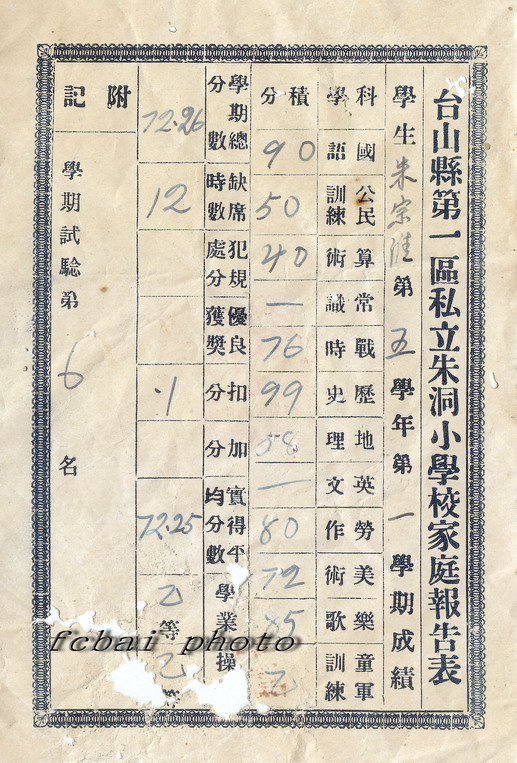 台山縣第一區私立朱洞小學校家庭報告表
學生朱宗 第五學年第一學期成績
科學 積分
國語 90
公民訓練 50
算術 40
常識 一
戰時 76
歷史 99
地理 58
英文 一
勞作 80
美術 72
樂歌 85
童軍訓練 乙
學期總分數 72.26
缺席時數 12
犯規處分
優良獲獎
扣分 .1
加分
實得平均分數 72.25
學業 乙等
操 乙等
附記
學期試驗第6名
fcbai photo